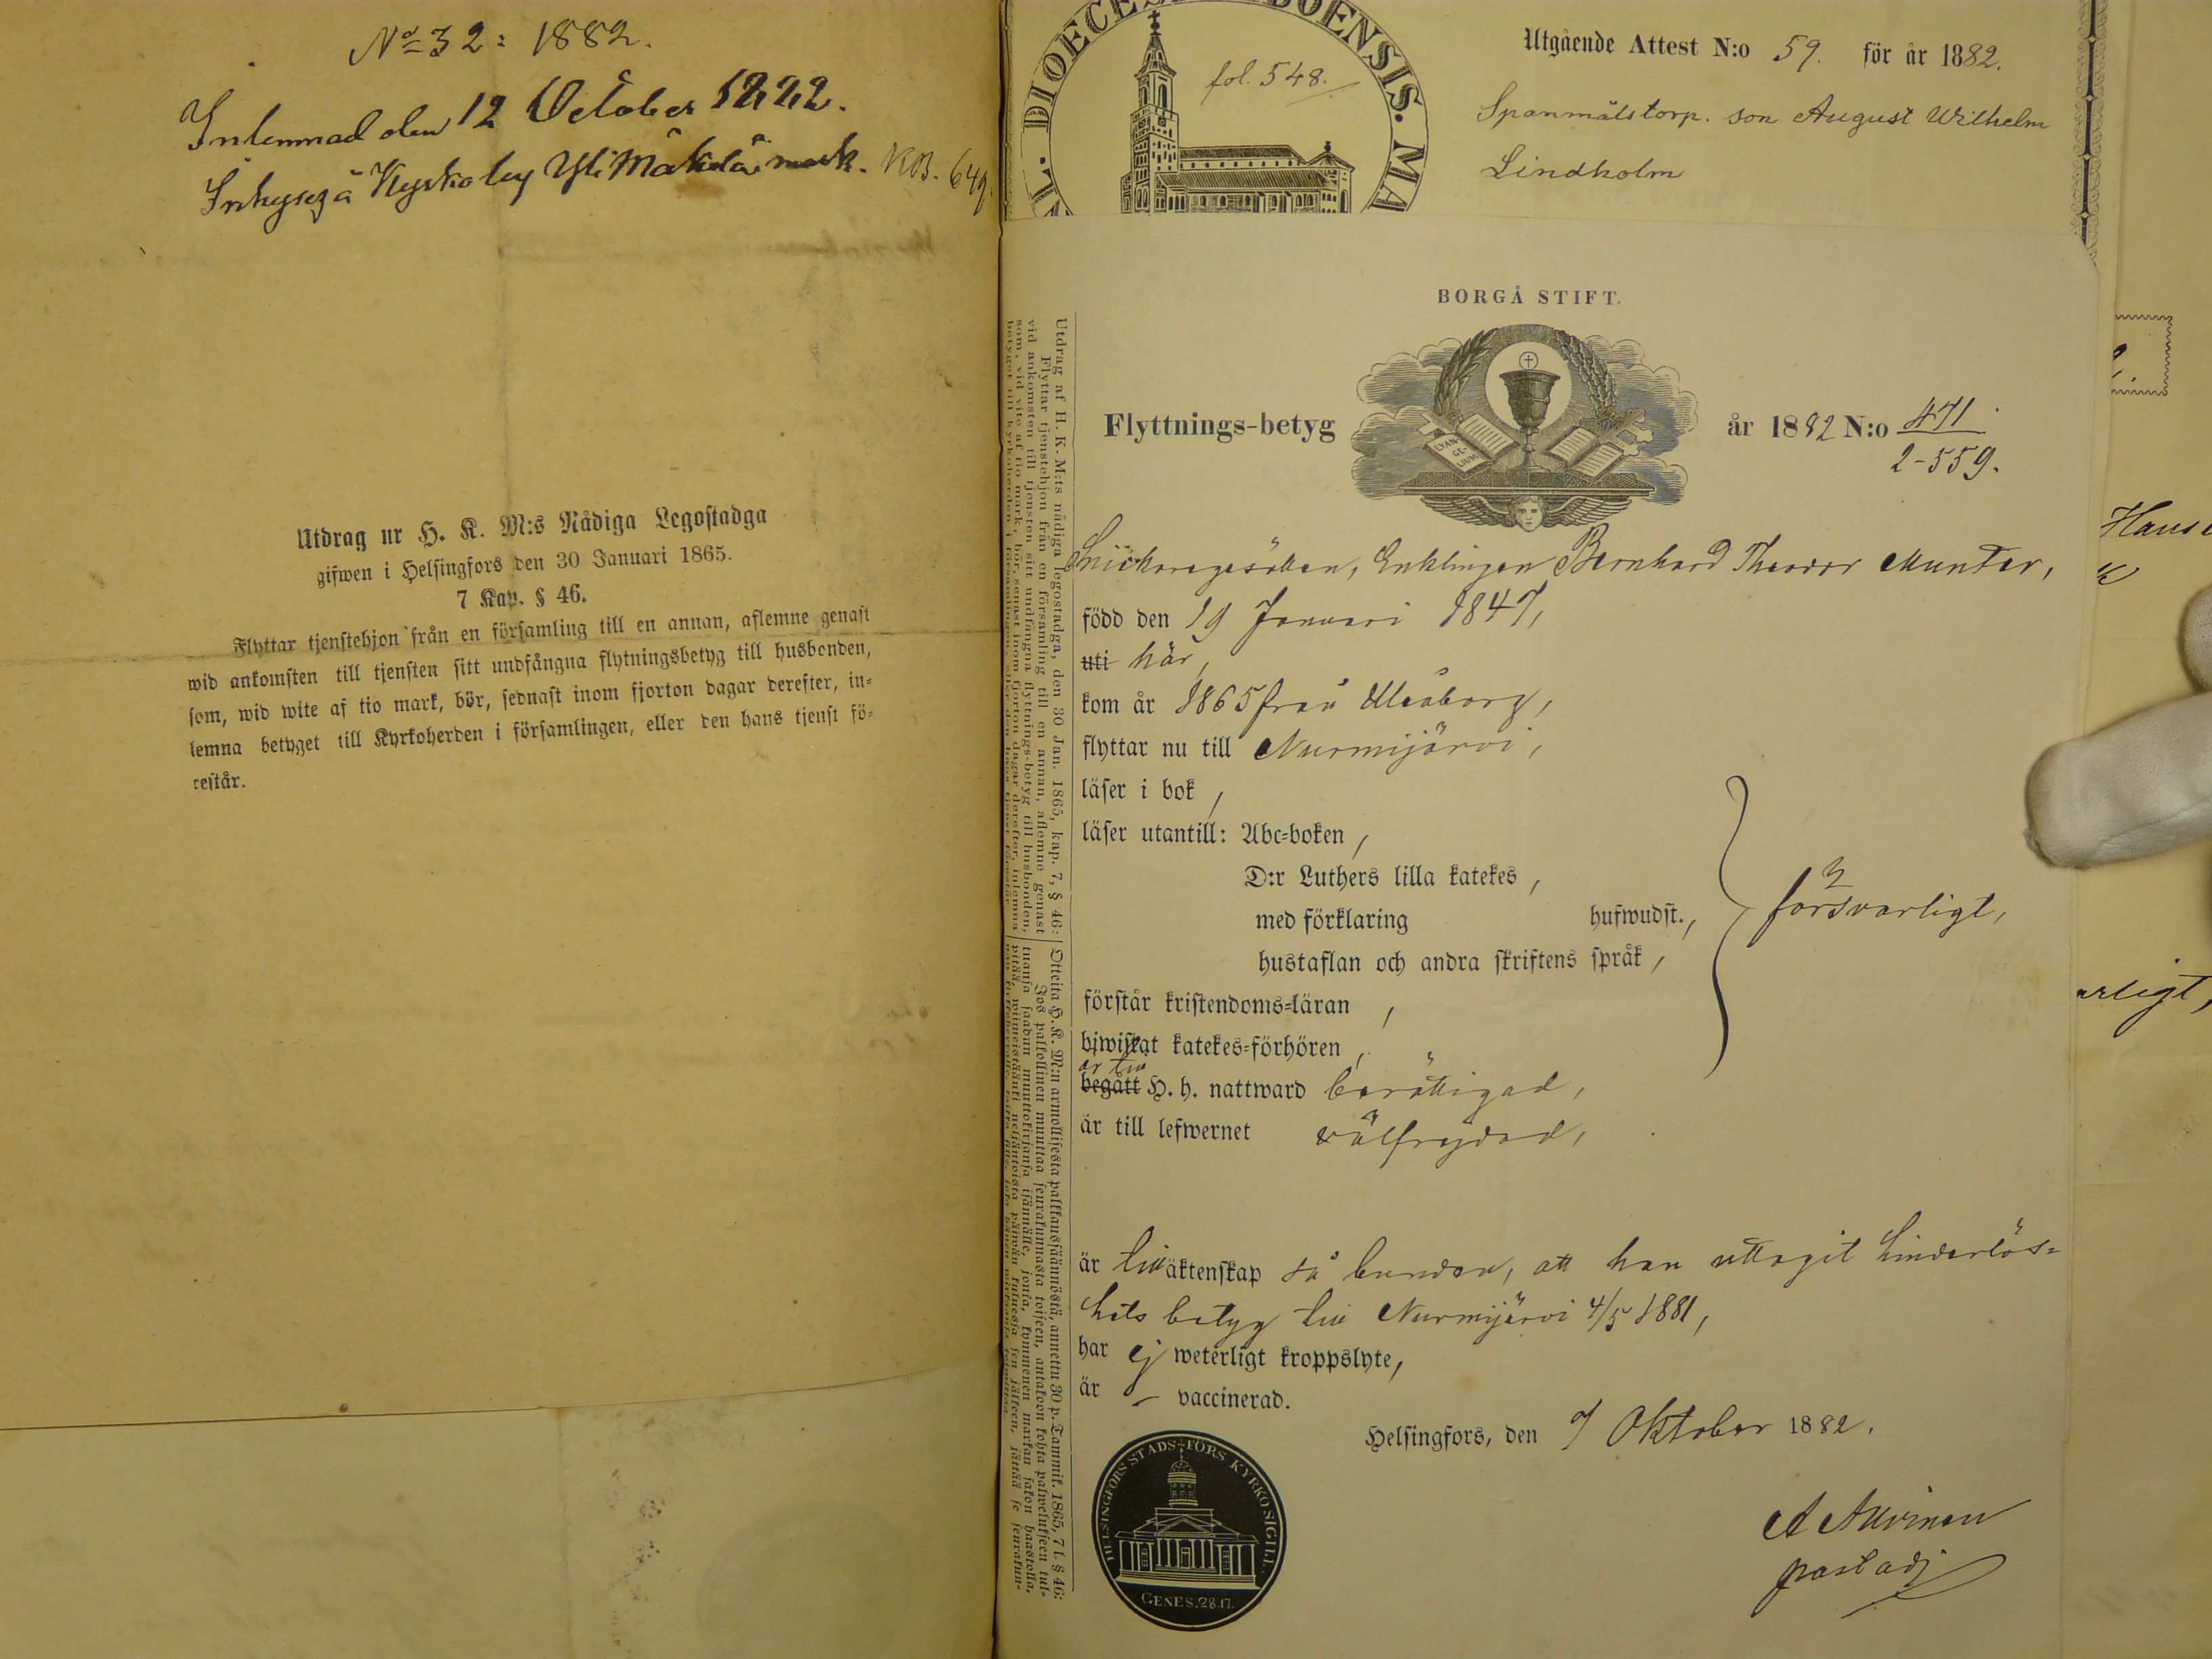 No 32: 1882.
Inlemnad den 12 October 1882.
Inhyseg å Kyrkoby Yli Mäkelä mark. KB. 649.
Utdrag ur H. K. M:s Nådiga Legostadga
gifwen i Helsingfors den 30 Januari 1865.
7 Kap. § 46.
Flyttar tjenstehjon från en församling till en annan, aflemne genast
wid ankomsten till tjensten sitt undfångna flytningsbetyg till husbonden,
som, wid wite af tio mark, bör, sednast inom fjorton dagar derefter, in-
lemna betyget till Kyrkoherden i församlingen, eller den hans tjenst fö-
restår.
DIOECES
BOENSIS. MA
fol. 548.
Utgående Attest N:o 59. för år 1882.
Spanmålstorp. son August Wilhelm
Lindholm
BORGÅ STIFT.
EVAN-
GE-
LIUM
Flyttnings-betyg år 1882 N:o 471
2-559.
Snickaregesällen, Enklingen Bernhard Theodor Munter,
född den 19 Januari 1847,
uti här,
kom år 1865 från Uleåborg,
flyttar nu till Nurmijärvi,
läser i bok,
läser utantill: Abc-boken,
D:r Luthers lilla katekes,
med förklaring hufwudst.,
hustaflan och andra skriftens språk,
förstår kristendoms-läran,
biwistat katekes-förhören,
försvarligt,
är till
begått H. h. nattward berättigad,
är till lefwernet välfrejdad,
är till äktenskap så bunden, att han uttagit hinderlös-
hets betyg till Nurmijärvi 4/5 1881,
har ej weterligt kroppslyte,
är – vaccinerad.
Helsingfors, den 7 Oktober 1882.
past adj
HELSINGFORS STADS-FÖRS KYRKOSIGILL.
GENES. 28.17.
Utdrag af H. K. M:ts nådiga legostadga, den 30 Jan. 1865, kap. 7, § 46:
Flyttar tjenstehjon från en församling till en annan, aflemne genast
vid ankomsten till tjensten sitt undfångna flyttnings-betyg till husbonden,
som, vid vite af tio mark, bör, senast inom fjorton dagar derefter, inlemna
Otteita H. K. M:n armollisesta palkkaussäännöstä, annettu 30 p. Tammik. 1865, 7 l. § 46:
Jos palkollinen muuttaa seurakunnasta toiseen, antakoon kohta palwelukseen tul-
tuansa saadun muuttokirjansa isännälle, jonka, kymmenen markan sakon haastolla,
arligt,